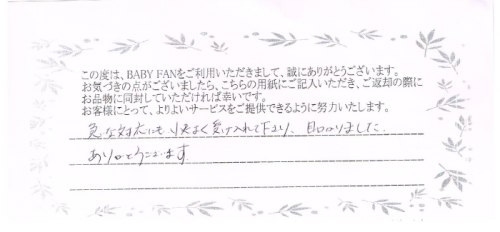 この度は、BABY FANをご利用いただきまして、誠にありがとうございます。
お気づきの点がございましたら、こちらの用紙にご記入いただき、ご返却の際に
お品物に同封していただければ幸いです。
お客様にとって、よりよいサービスをご提供できるように努力いたします。
急な対応にも 快よく受け入れて下さり、助かりました。
ありがとうございます。